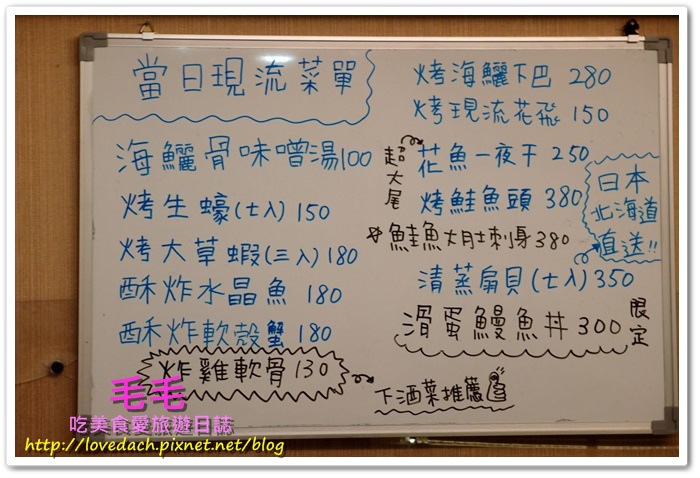 當日現流菜單
海鱺骨味噌湯100
烤生蠔(十入)150
烤大草蝦(三入)180
酥炸水晶魚 180
酥炸軟殼蟹 180
炸雞軟骨130
下酒菜推薦
烤海鱺下巴 280
烤現流花飛 150
超大尾
花魚一夜干 250
烤鮭魚頭 380
鮭魚大肚刺身380
清蒸扇貝(十入)350
日本
北海道
直送!!
滑蛋鰻魚丼 300
限定
毛毛
吃美食愛旅遊日誌
http://lovedach.pixnet.net/blog